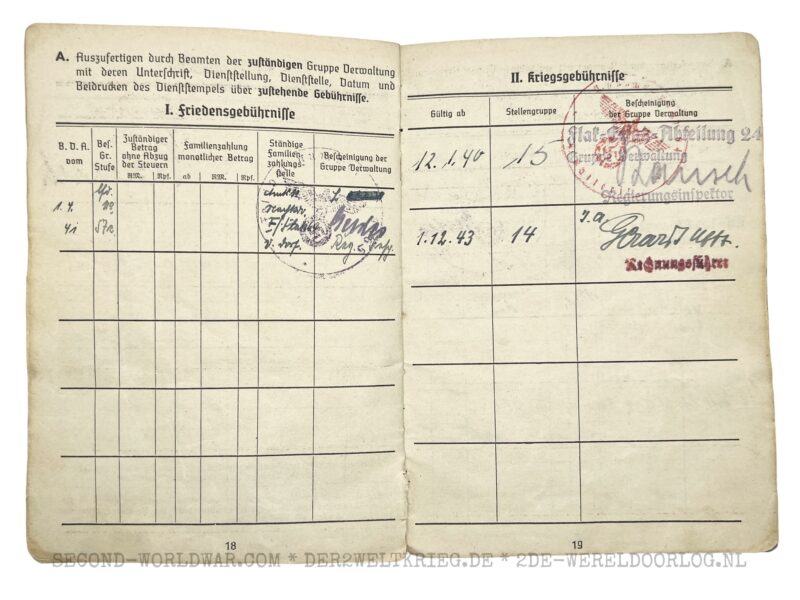 A. Auszufertigen durch Beamten der zuständigen Gruppe Verwaltung
mit deren Unterschrift, Dienststellung, Dienststelle, Datum und
Beidrucken des Dienststempels über zustehende Gebührnisse.
I. Friedensgebührnisse
B. D. A.
vom
Bes.
Gr.
Stufe
Zuständiger
Betrag
ohne Abzug
der Steuern
RM.
Rpf.
Familienzahlung
monatlicher Betrag
ab
RM.
Rpf.
Ständige
Familien-
zahlungs-
stelle
Bescheinigung der
Gruppe Verwaltung
1.4.
41
18
II. Kriegsgebührnisse
Gültig ab
Stellengruppe
Bescheinigung
der Gruppe Verwaltung
12.1.40
15
Abteilung 24
Gruppe Verwaltung
Regierungsinspektor
1.12.43
14
J.A.
Rechnungsführer
19
SECOND-WORLDWAR.COM * DER2WELTKRIEG.DE * 2DE-WERELDOORLOG.NL